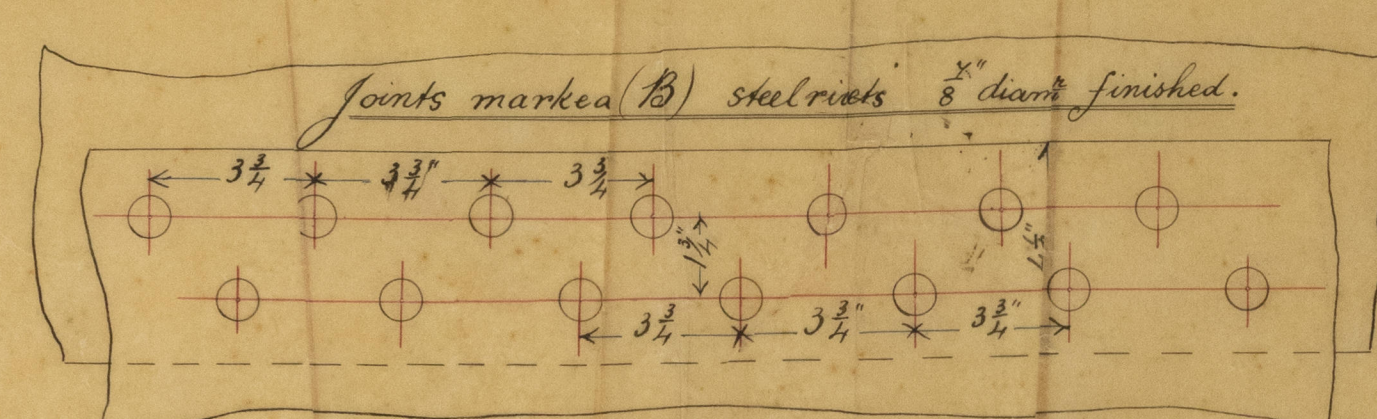 Joints marked (B) steel rivets 7/8" diamr finished.
3 3/4 3 3/4" 3 3/4
1 3/4"
3 3/4 3 3/4" 3 3/4"